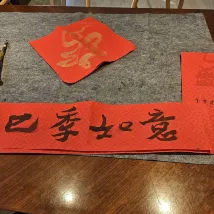 巳季如意